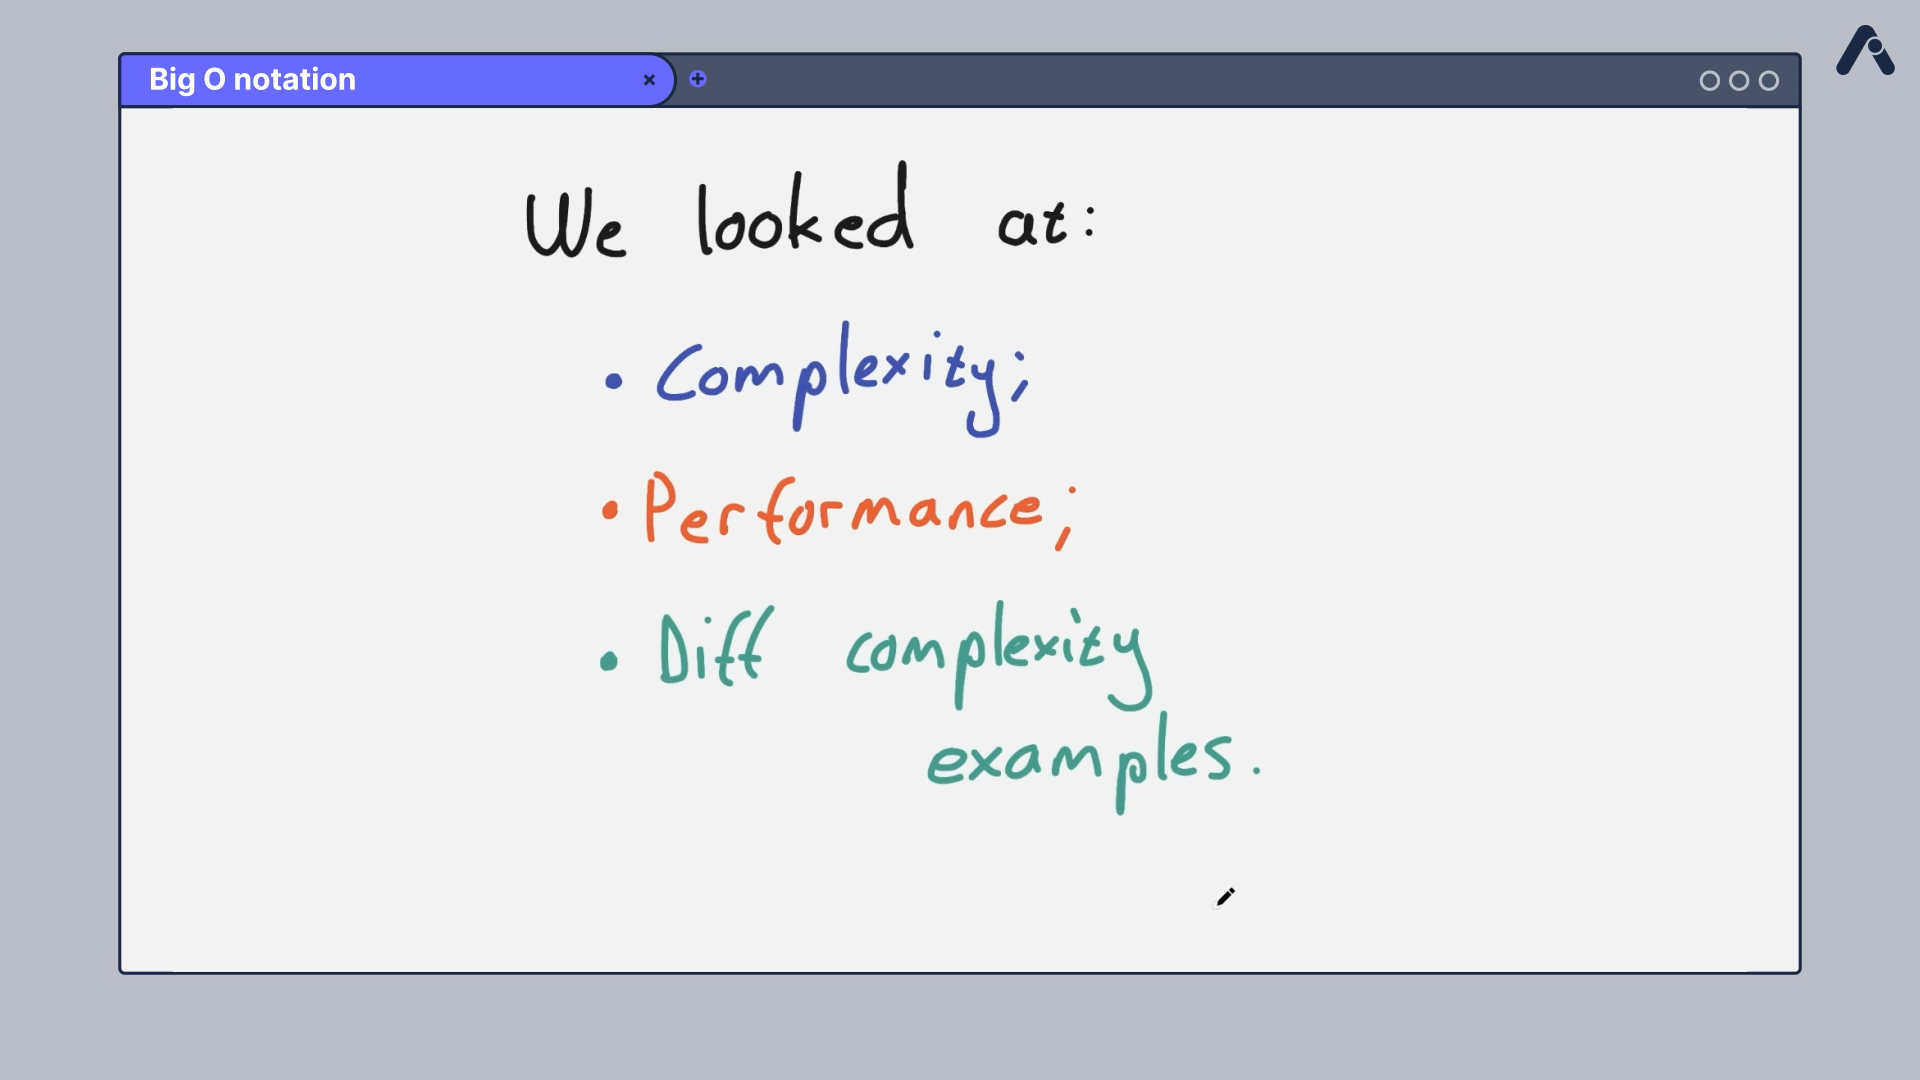 Big O notation
We looked at:
• Complexity;
• Performance;
• Diff complexity
examples.